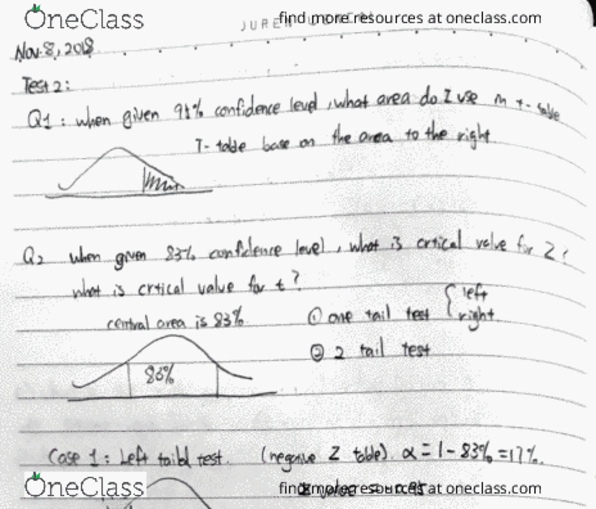 OneClass
find more resources at oneclass.com
Nov. 8, 2018
Test 2:
Q1: when given 98% confidence level, what area do I use in t-table
T-table base on the area to the right
Q2 when given 83% confidence level, what is crtical value for Z?
what is crtical value for t?
central area is 83%
① one tail test { left
right
② 2 tail test
83%
Case 1: Left taild test. (negative Z table). α = 1 - 83% = 17%.
OneClass
find more resources at oneclass.com